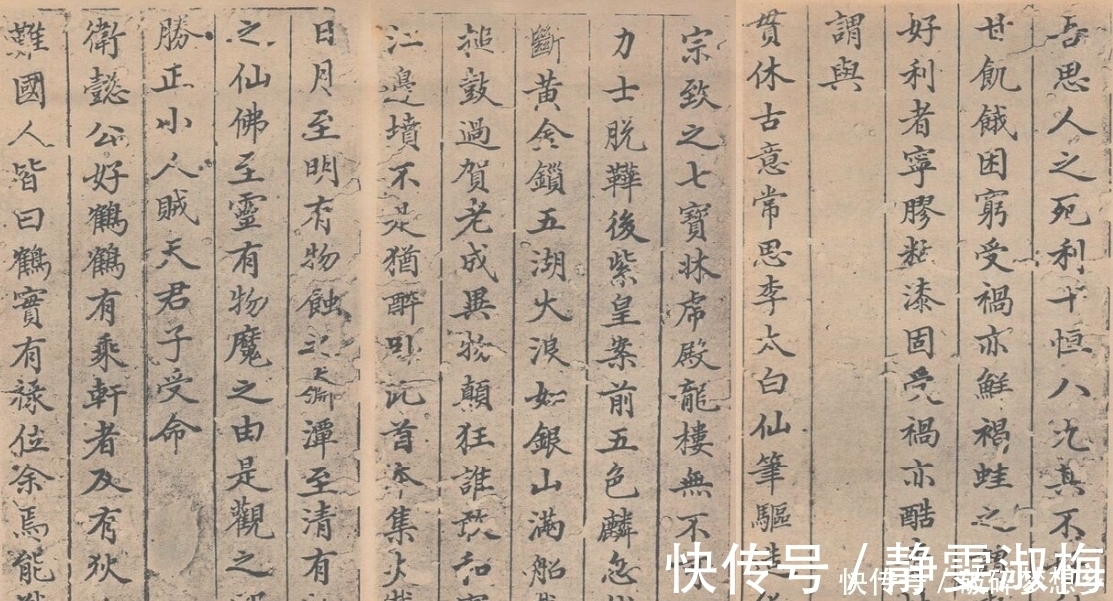 吾思人之死利十恒八九真不
甘飢餓困窮受禍亦鮮禍蛙之
好利者寧膠粘漆固受禍亦酷
謂與
貫休古意常思李太白仙筆驅造
宗致之七寶牀虎殿龍樓無不
力士脱鞾後紫皇案前五色麟忽
斷黄金鎖五湖大浪如銀山滿船
搥鼓過賀老成異物顛狂誰敢和
江邊墳不是猶醉卧此首本集大
日月至明有物蝕之 潭至清有
之仙佛至靈有物魔之由是觀之
勝正小人賊天君子受命
衛懿公好鶴鶴有乘軒者及有狄
難國人皆曰鶴實有禄位余焉能
快传号 / 静雲淑梅
快传号